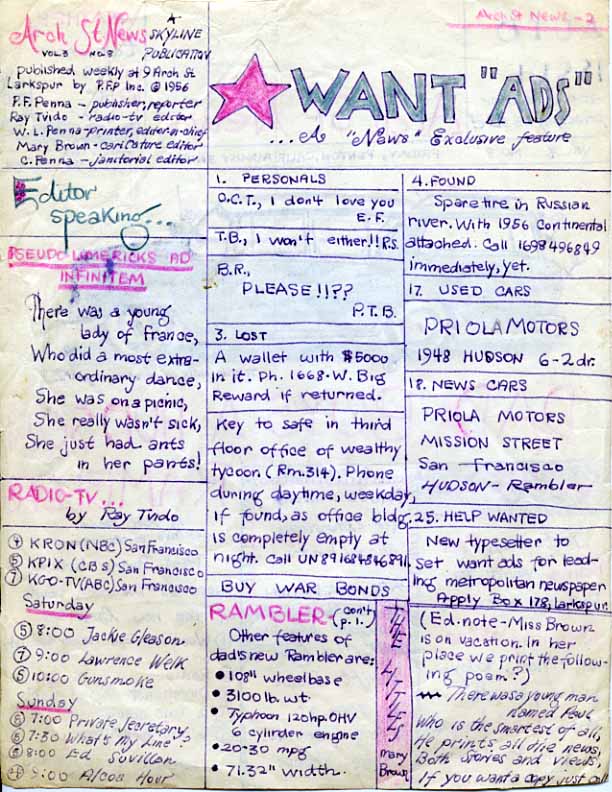 Arch St News - 2
Arch St. News
A SKYLINE PUBLICATION
VOL 3 NO. 8
published weekly at 9 Arch St
Larkspur by P.F.P Inc. © 1956
P.F. Penna - publisher, reporter
Ray Tvido - radio-tv editor
W. L. Penna - printer, editor-in-chief
Mary Brown - cariCature editor
C. Penna - janitorial editor
WANT "ADS"
... A "News" Exclusive feature
Editor
speaking...
PSEUDO LIMERICKS AD
INFINITEM
There was a young
lady of France,
Who did a most extra-
ordinary dance,
She was on a picnic,
She really wasn't sick,
She just had ants
in her pants!
RADIO-TV...
by Ray Tvido
④ KRON (NBC) San Francisco
⑤ KPIX (CBS) San Francisco
⑦ KGO-TV (ABC) San Francisco
Saturday
⑤ 8:00 Jackie Gleason
⑦ 9:00 Lawrence Welk
⑤ 10:00 Gunsmoke
Sunday
⑤ 7:00 Private Secretary
⑤ 7:30 What's My Line?
⑤ 8:00 Ed Suvillan
④ 9:00 Alcoa Hour
1. PERSONALS
O.C.T., I don't love you
E.F.
T.B., I won't either!! R.S.
B.R.,
PLEASE!!??
P.T.B.
3. LOST
A wallet with $5000
in it. Ph. 1668-W. Big
Reward if returned.
Key to safe in third
floor office of wealthy
tycoon (Rm. 314). Phone
during daytime, weekday,
if found, as office bldg.
is completely empty at
night. Call UN891684846891.
BUY WAR BONDS
RAMBLER - (con't p. 1.)
Other features of
dad's new Rambler are:
• 108" wheelbase
• 3100 lb. wt.
• Typhoon 120hp. OHV
6 cylinder engine
• 20-30 mpg
• 71.32" width.
mary
Brown
4. FOUND
Spare tire in Russian
river. With 1956 Continental
attached. Call 1698496849
immediately, yet.
17. USED CARS
PRIOLA MOTORS
1948 HUDSON 6-2dr.
18. NEWS CARS
PRIOLA MOTORS
MISSION STREET
San Francisco
HUDSON - Rambler
25. HELP WANTED
New typesetter to
set want ads for lead-
ing metropolitan newspaper
Apply Box 178, Larkspur.
(Ed. note - Miss Brown
is on vacation. In her
place we print the follow-
ing poem?)
There was a young man
named Paul
Who is the smartest of all,
He prints all the news,
Both stories and views,
If you want a copy just call